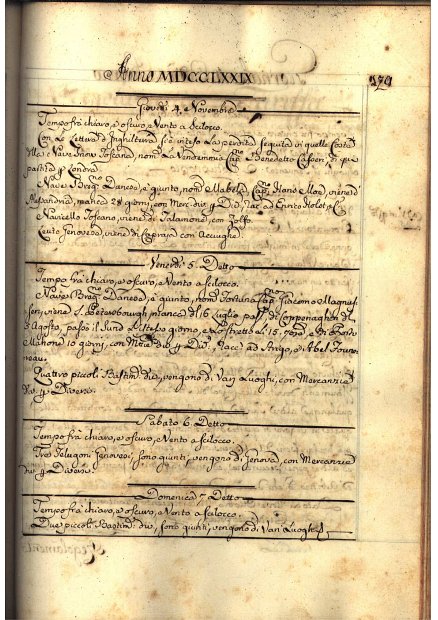 Anno MDCCLXXIX
Giovedì 4. Novembre
Tempo frà chiaro, e oscuro, e Vento a Scilocco.
Con le Lettere d'Inghilterra si è inteso la perdita seguita in quelle Coste
della Nave Snow Toscana, nom. La Vendemmia Cap.no Benedetto Casseri, di qui
partita p. Londra.
Nave Brig.no Danese, è giunto, nom. Mabel, Cap.no viene d
Alessandria, manca 28 giorni, con Merc. div. p. Div.
Navicello Toscano, viene di Talamone, con Zolfo.
Leuto Genovese, viene di Capraja, con Acciughe.
Venerdì 5. Detto
Tempo frà chiaro, e oscuro, e Vento a scilocco.
Nave Brig.no Danese, è giunto, nom. Fortuna Cap.no Giacomo Magnus
sen, viene S. Petersbourgh, manca di 16 Luglio, pass. di Coppenaghen
Agosto, passò il Sund stesso giorno, e lo stretto li 15. 7bre, e di Porto
Mahone 10 giorni, con Merc. div. p. Div. Racc. ad Arrigo, e Abel Fonne
reau.
Quattro piccoli Bastim. div. vengono di Varj Luoghi, con Mercanzie
div. p. Diversi.
Sabato 6. Detto
Tempo frà chiaro, e oscuro, e Vento a scilocco.
Tre Feluconi Genovesi, sono giunti, vengono di Genova, con Mercanzie
div. p. Diversi.
Domenica 7 Detto
Tempo frà chiaro, e oscuro, e Vento a Scilocco.
Due piccoli Bastim. div. sono giunti, vengono di Varj Luoghi